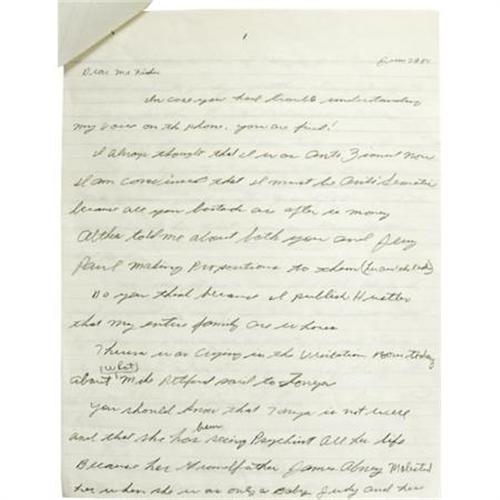 Dear Mr
In case you had trouble understanding
my voice on the phone. you are fired!
I always thought that I was Anti Zionist now
I am convinced that I must be Anti Semetic
because all you bastards are after is money
Althea told me about both you and
Paul making Propositions to them
Do you think because I publish Hustler
that my entire family are whores
Theresa was crying in the Visitation Room today
(what)
about Mike said to Tonya
You should know that Tonya is not well
been
and that she has seeing Psychist All her life
Because her Grandfather James Abney Molested
her when she was only a Baby Judy and her